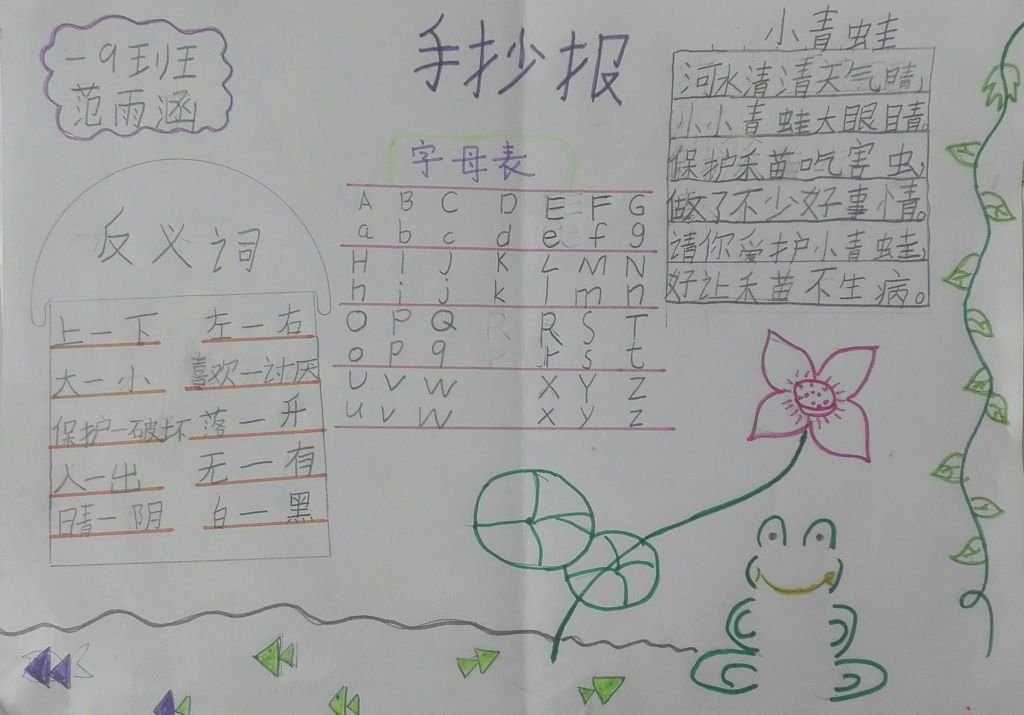 一9班
范雨涵
手抄报
小青蛙
河水清清天气晴，
小小青蛙大眼睛。
保护禾苗吃害虫，
做了不少好事情。
请你爱护小青蛙，
好让禾苗不生病。
字母表
A B C D E F G
a b c d e f g
H I J K L M N
h i j k l m n
O P Q R S T
o p q r s t
U V W X Y Z
u v w x y z
反义词
上一下 左一右
大一小 喜欢一讨厌
保护一破坏 落一升
入一出 无一有
晴一阴 白一黑